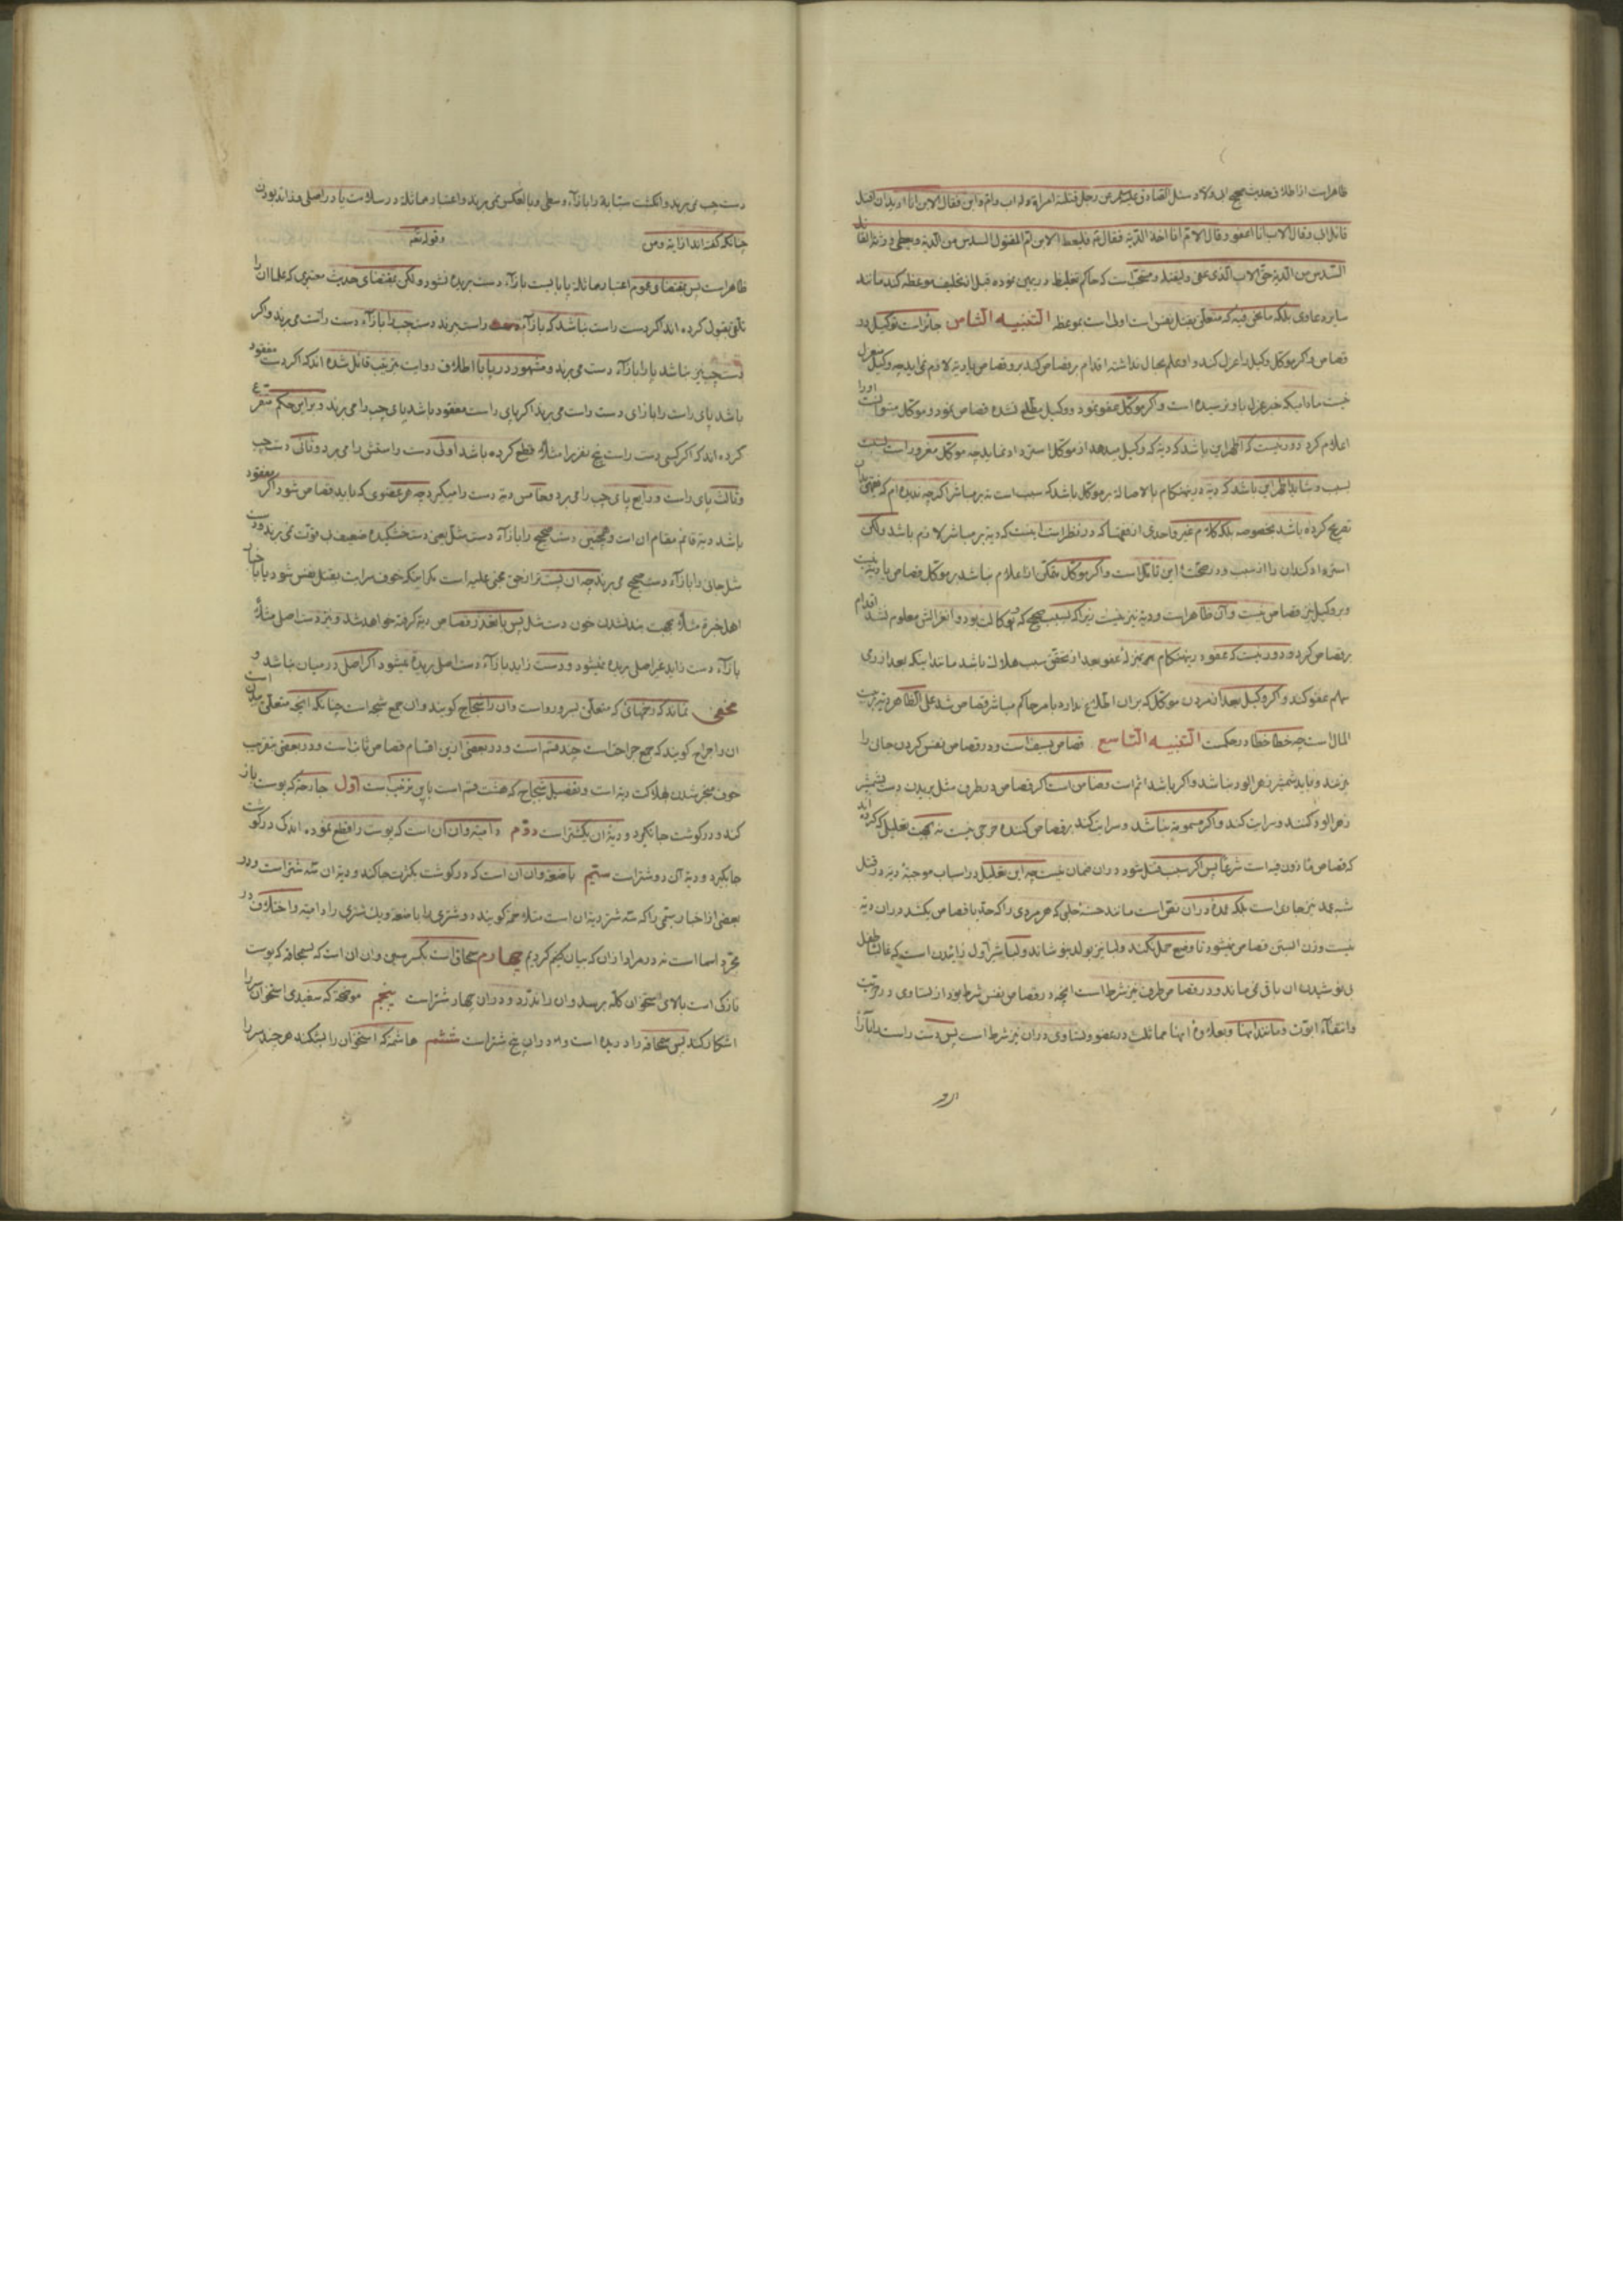 ظاهر است از اطلاق حدیث صحیح ابی ولاد سئل الصادق علیه السلام عن رجل قتل و له امراة و له اب و ام و ابن فقال الابن انا ارید ان اقتل
قاتل ابی و قال الاب انا اعفو و قال الام انا اخذ الدیة فقال ع فلیعط الابن ام المقتول السدس من الدیة و یعطی ورثة القاتل
السدس من الدیة حق الاب الذی عفی و لیقتله و مستحب است که حاکم تغلیظ در یمین نموده قبل از تحلیف موعظه کند مانند
سایر دعاوی بلکه ما نحن فیه که متعلق بقتل نفس است اولی است بموعظه التنبیه الثامن جائز است توکیل در
قصاص و اگر موکل وکیل را عزل کند و او علم بحال نداشته اقدام بر قصاص کند بر او قصاص یا دیه لازم نمی اید چه وکیل معزول
نیست مادامیکه خبر عزل باو نرسیده است و اگر موکل عفو نمود و وکیل مطلع نشده قصاص نمود و موکل میتوانست او را
اعلام کرد دور نیست که اظهر این باشد که دیه که وکیل میدهد از موکل استرداد نماید چه موکل مغرور است بسبب
سبب و شاید اظهر این باشد که دیه در ینهنکام بالاصالة بر موکل باشد که سبب است نه بر مباشر اگرچه ندیده ام که فقیهی بان
تصریح کرده باشد بخصوصه بلکه کلام غیر واحدی از فقها که در نظر است اینست که دیه بر مباشر لازم باشد ولکن
استرداد کند ان را از سبب و در صحت این تامل است و اگر موکل متمکن از اعلام نباشد بر موکل قصاص یا دیه نیست
و بر وکیل نیز قصاص نیست و ان ظاهر است و دیه نیز نیست زیرا که بسبب صحیح که توکالت بود و انعزالش معلوم نشد اقدام
بر قصاص کرد و دور نیست که عفو در ینهنکام بمنزلۀ عفو بعد از تحقق سبب هلاک باشد مانند اینکه بعد از رمی
سهم عفو کند و اگر وکیل بعد از مردن موکل که بران اطلاع ندارد بامر حاکم مباشر قصاص شد علی الظاهر دیه بر بیت
المال است چه خطا خطا در حکمست التنبیه التاسع قصاص بسیف است و در قصاص نفس کردن جانی را
میزنند و نباید شمشیر زهر الود نباشد و اگر باشد اثم است و ضامن است اگر قصاص در طرف مثل بریدن دست بشمشیر
زهر الود کنند و سرایت کند و اگر مسمومه نباشد و سرایت کند بر قصاص کننده حرجی نیست نه بجهت تعلیل که کرده اند
که قصاص ماذون فیه است شرعا پس اگر سبب قتل شود در ان ضمان نیست چه این تعلیل در اسباب موجبۀ دیه در قتل
شبه عمد نیز جاری است بلکه عمدۀ در ان نص است مانند حسنۀ حلبی که هر مردی را که حد یا قصاص بکشد در ان دیه
نیست و زن ابستن قصاص نمیشود تا وضع حمل بکند و لبا نیز بولد بنوشاند و لبا شیر اول زائیدن است که غالبا طفل
بی نوشیدن ان باقی نمی ماند و در قصاص طرف نیز شرط است انچه در قصاص نفس شرط بود از تساوی در حریت
و انتفاء ابوت و مانند اینها و بعلاوۀ اینها مماثلت در عضو و تساوی در ان نیز شرط است پس دست راست را بازاء
دست چپ نمی برند و انگشت سبابه را بازاء وسطی و بالعکس نمی برند و اعتبار مماثله در سلامت یا در اصلی و زائد بودن
چنانکه گفته اند از ایه و من و قوله تعه
ظاهر است پس بمقتضای عموم اعتبار مماثله پا بایست بازاء دست بریده نشود ولکن بمقتضای حدیث معتبری که علما ان را
تلقی بقبول کرده اند اگر دست راست نباشد که بازاء دست راست ببرند دست چپ را بازاء دست راست می برند و اگر
دست چپ نیز نباشد پا را بازاء دست می برند و مشهور در پا با اطلاق روایت بترتیب قائل شده اند که اگر دست مفقود
باشد پای راست را بازای دست راست می برند اگر پای راست مفقود باشد پای چپ را می برند و بر این حکم متفرع
کرده اند که اگر کسی دست راست پنج نفر را مثلاً قطع کرده باشد اولی دست راستش را می برد و ثانی دست چپ
و ثالث پای راست و رابع پای چپ را می برد و خامس دیه دست را میگیرد چه هر عضوی که باید قصاص شود اگر مفقود
باشد دیه قائم مقام ان است و همچنین دست صحیح را بازاء دست شل یعنی دست خشکیده ضعیف بی قوت نمی برند و دست
شل جانی را بازاء دست صحیح می برند چه ان پست تر از حق مجنی علیه است مگر اینکه خوف سرایت بقتل نفس شود باخبار
اهل خبرة مثلاً بجهت بند نشدن خون دست شل پس با تعذر قصاص دیه گرفته خواهد شد و نیز دست اصلی مثلاً
بازاء دست زاید غیر اصلی بریده نمیشود و دست زاید بازاء دست اصلی بریده نمیشود اگر اصلی در میان نباشد و
مخفی نماند که زخمهائی که متعلق بسر و رو است و ان را شجاج گویند و ان جمع شجه است چنانکه انچه متعلق ببدن است
ان را جراح گویند که جمع جراحت است چند قسم است و در بعضی از این اقسام قصاص ثابت است و در بعضی بتقریب
خوف منجر شدن بهلاکت دیه است و تفصیل شجاج که هشت قسم است باین ترتیب است اول حارصه که پوست باز
کند و در گوشت جا نگیرد و دیۀ ان یکشتر است دوم دامیه و ان ان است که پوست را قطع نموده اندک در گوشت
جا بگیرد و دیه آن دو شتر است سیم باضعه و ان ان است که در گوشت بکثرت جا کند و دیه ان سه شتر است و در
بعضی از اخبار سیمی را که سه شتر دیه ان است متلاحمه گویند و دو شتری را باضعه و یک شتری را دامیه و اختلاف در
مجرد اسما است نه در مراد از ان که بیان حکم کردیم چهارم سمحاق است بکسر سین و ان ان است که بسمحاقه که پوست
نازکی است بالای استخوان کله برسد و ان را ندرد و در ان چهار شتر است پنجم موضحه که سفیدی استخوان را
اشکار کند پس سمحاقه را دریده است و در ان پنج شتر است ششم هاشمه که استخوان را بشکند هر چند سر را